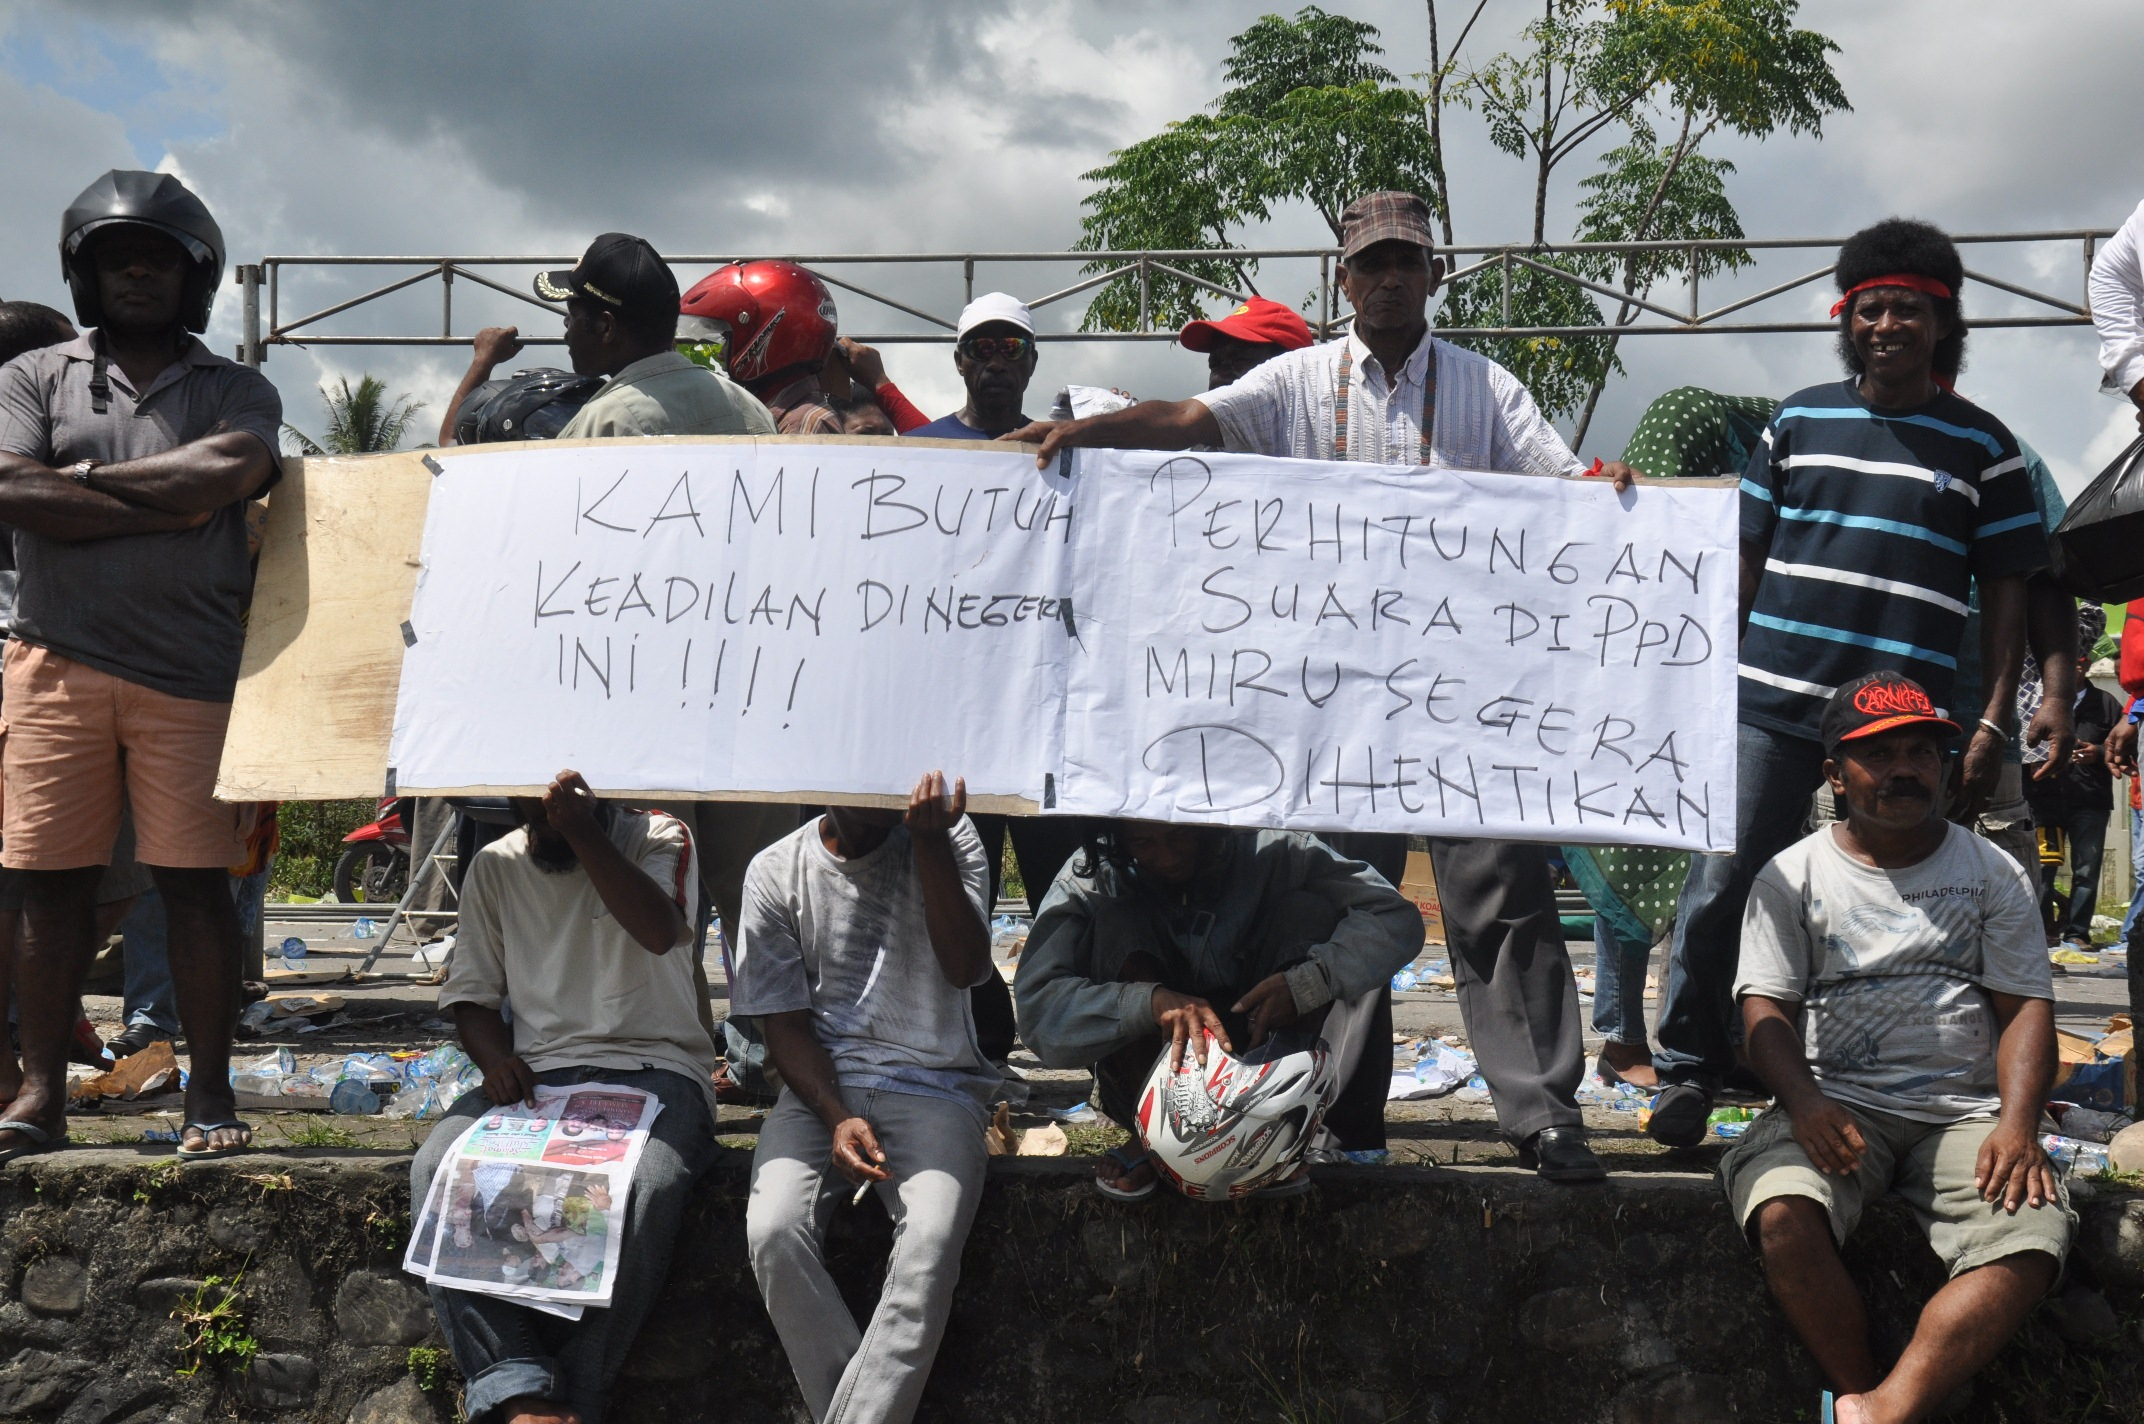 KAMI BUTUH
KEADILAN DI NEGERI
INI !!!!
PERHITUNGAN
SUARA DI PPD
MIRU SEGERA
DIHENTIKAN
PHILADELPHIA
EXCHANGE
SCORPIONS